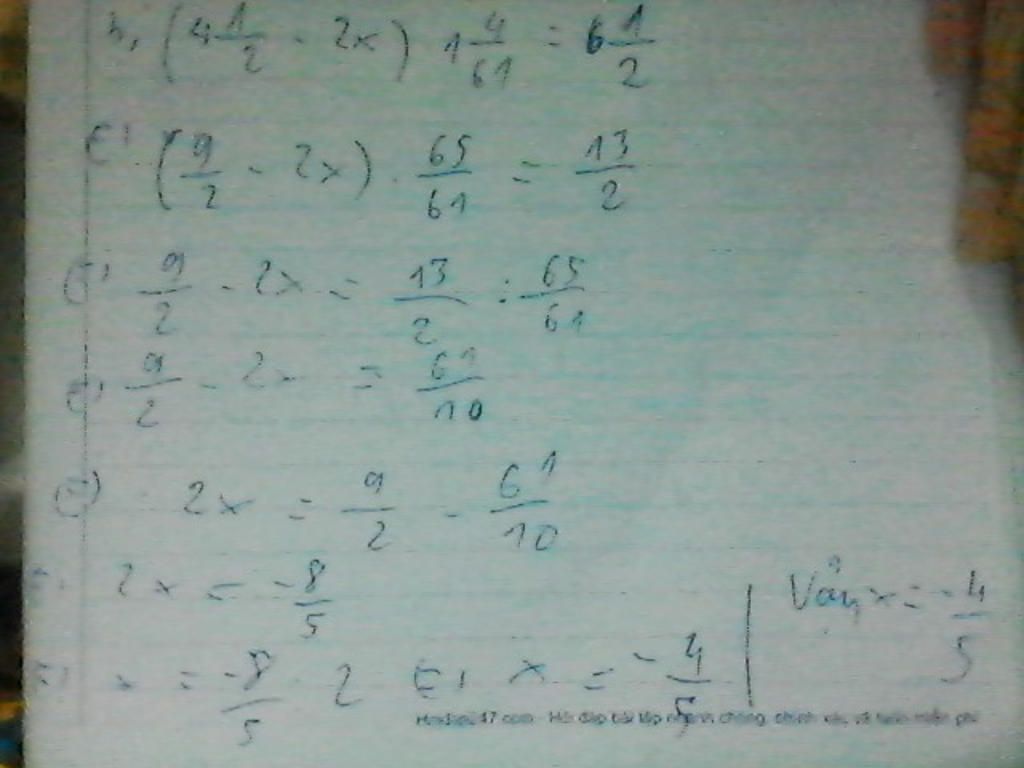 h, (4 1/2 - 2x) 1 4/61 = 6 1/2
(=) (9/2 - 2x) . 65/61 = 13/2
(=) 9/2 - 2x = 13/2 : 65/61
(=) 9/2 - 2x = 61/10
(=) 2x = 9/2 - 61/10
(=) 2x = -8/5
(=) x = -8/5 : 2 (=) x = -4/5 | Vậy x = -4/5
Hoidap247.com - Hỏi đáp bài tập nhanh chóng, chính xác và hoàn miễn phí